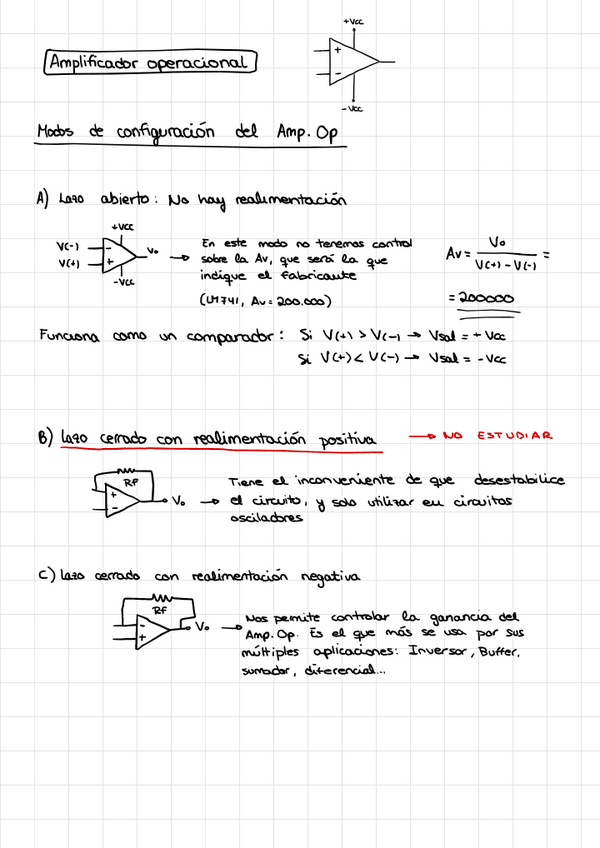 +Vcc
Amplificador operacional
+
-
-Vcc
Modos de configuración del Amp. Op
A) Lazo abierto: No hay realimentación
+Vcc
V(-)
V(+)
-
+
Vo
-Vcc
En este modo no tenemos control
sobre la Av, que será la que
indique el fabricante
(UM741, Av = 200.000)
Av = Vo / V(+) - V(-) =
= 200000
Funciona como un comparador: Si V(+) > V(-) → Vsal = + Vcc
Si V(+) < V(-) → Vsal = - Vcc
B) Lazo cerrado con realimentación positiva → NO ESTUDIAR
RF
+
-
Vo →
Tiene el inconveniente de que desestabilice
el circuito, y solo utilizar en circuitos
osciladores
C) Lazo cerrado con realimentación negativa
RF
-
+
Vo →
Nos permite controlar la ganancia del
Amp. Op. Es el que más se usa por sus
múltiples aplicaciones: Inversor, Buffer,
sumador, diferencial...